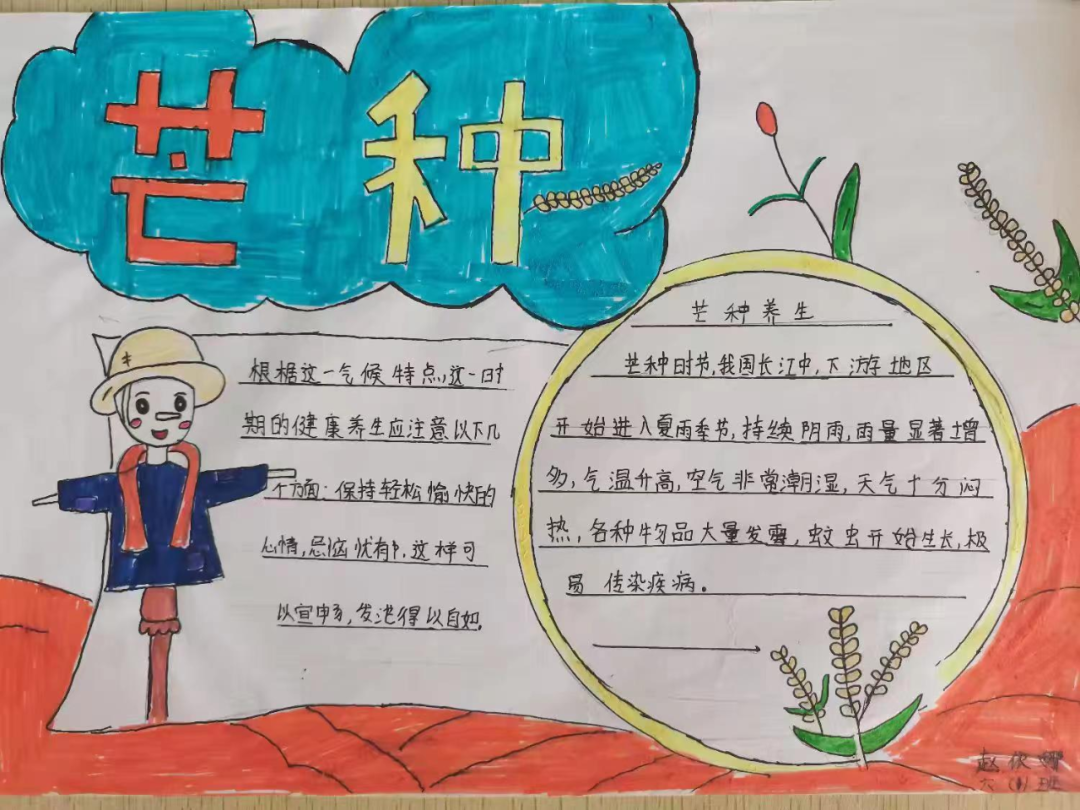 芒种
根据这一气候特点,这一时
期的健康养生应注意以下几
个方面:保持轻松愉快的
心情,忌恼忧有,这样可
以宣畅,发泄得以自如.
芒种养生
芒种时节,我国长江中,下游地区
开始进入夏雨季节,持续阴雨,雨量显著增
多,气温升高,空气非常潮湿,天气十分闷
热,各种物品大量发霉,蚊虫开始生长,极
易传染疾病。
赵依
六(1)班